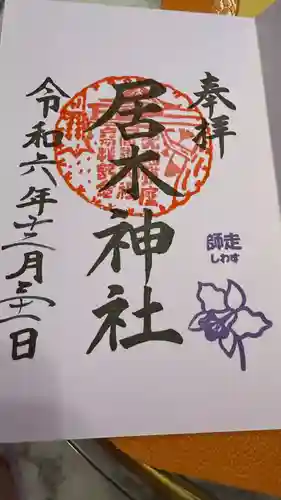 奉拝
居木神社
師走
しわす
令和六年十二月三十一日